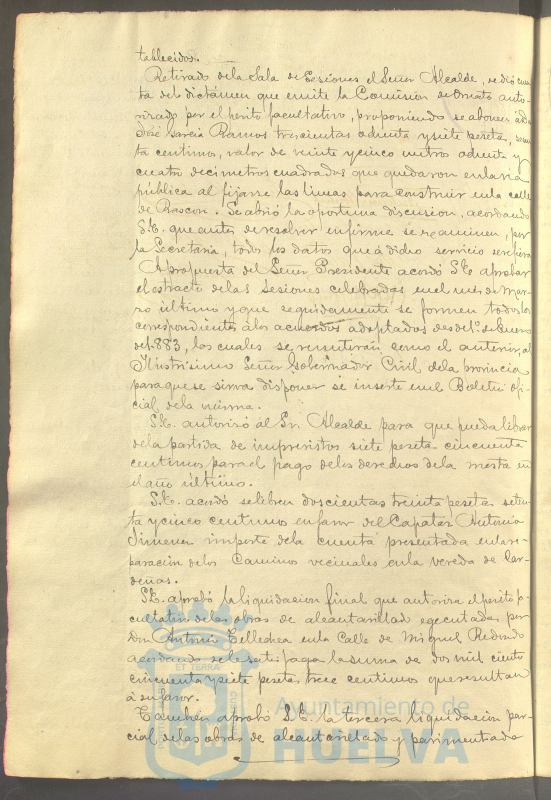 tablecidos.
Retirado de la Sala de Sesiones el Señor Alcalde, se dió cuen
ta del dictámen que emite la Comision de Ornato auto
rizado por el perito facultativo, proponiendo se abonen á Dn.
José Garcia Ramos trescientas ochenta y siete pesetas, sesen
ta centimos, valor de veinte y cinco metros ochenta y
cuatro decimetros cuadrados que quedaron en la via
pública al fijarse las lineas para construir en la calle
de Rascon. Se abrió la oportuna discusion, acordando
S.E. que antes de resolver en firme se examinen, por
la Secretaria, todos los datos que á dicho servicio se refiera
A propuesta del Señor Presidente acordó S.E. aprobar
el extracto de las sesiones celebradas en el mes de Mar
zo último y que seguidamente se formen todos los
correspondientes á los acuerdos adoptados desde 1º de Enero
de 1.883, los cuales se remitirán como el anterior, al
Ilustrisimo Señor Gobernador Civil de la provincia
para que se sirva disponer se inserte en el Boletin ofi
cial de la misma.
S.E. autorizó al Sr. Alcalde para que pueda librar
de la partida de imprevistos siete pesetas cincuenta
centimos para el pago de los derechos de la mesta en
el año último.
S.E. acordó se libren doscientas treinta pesetas seten
ta y cinco centimos en favor del Capataz Antonio
Jimenez importe de la cuenta presentada en la re
paracion de los Caminos vecinales en la vereda de Car-
deñas.
S.E. aprobó la liquidacion final que autoriza el perito fa
cultativo de las obras de alcantarillado egecutadas por
Don Antonio Tellechea en la Calle de Miguel Redondo
acordando se le satisfaga la suma de dos mil ciento
cincuenta y siete pesetas trece centimos que resultan
á su favor.
Tambien aprobó S.E. la tercera liquidacion par-
cial de las obras de alcantarillado y pavimentado
ET TERRÆ
Ayuntamiento de
HUELVA